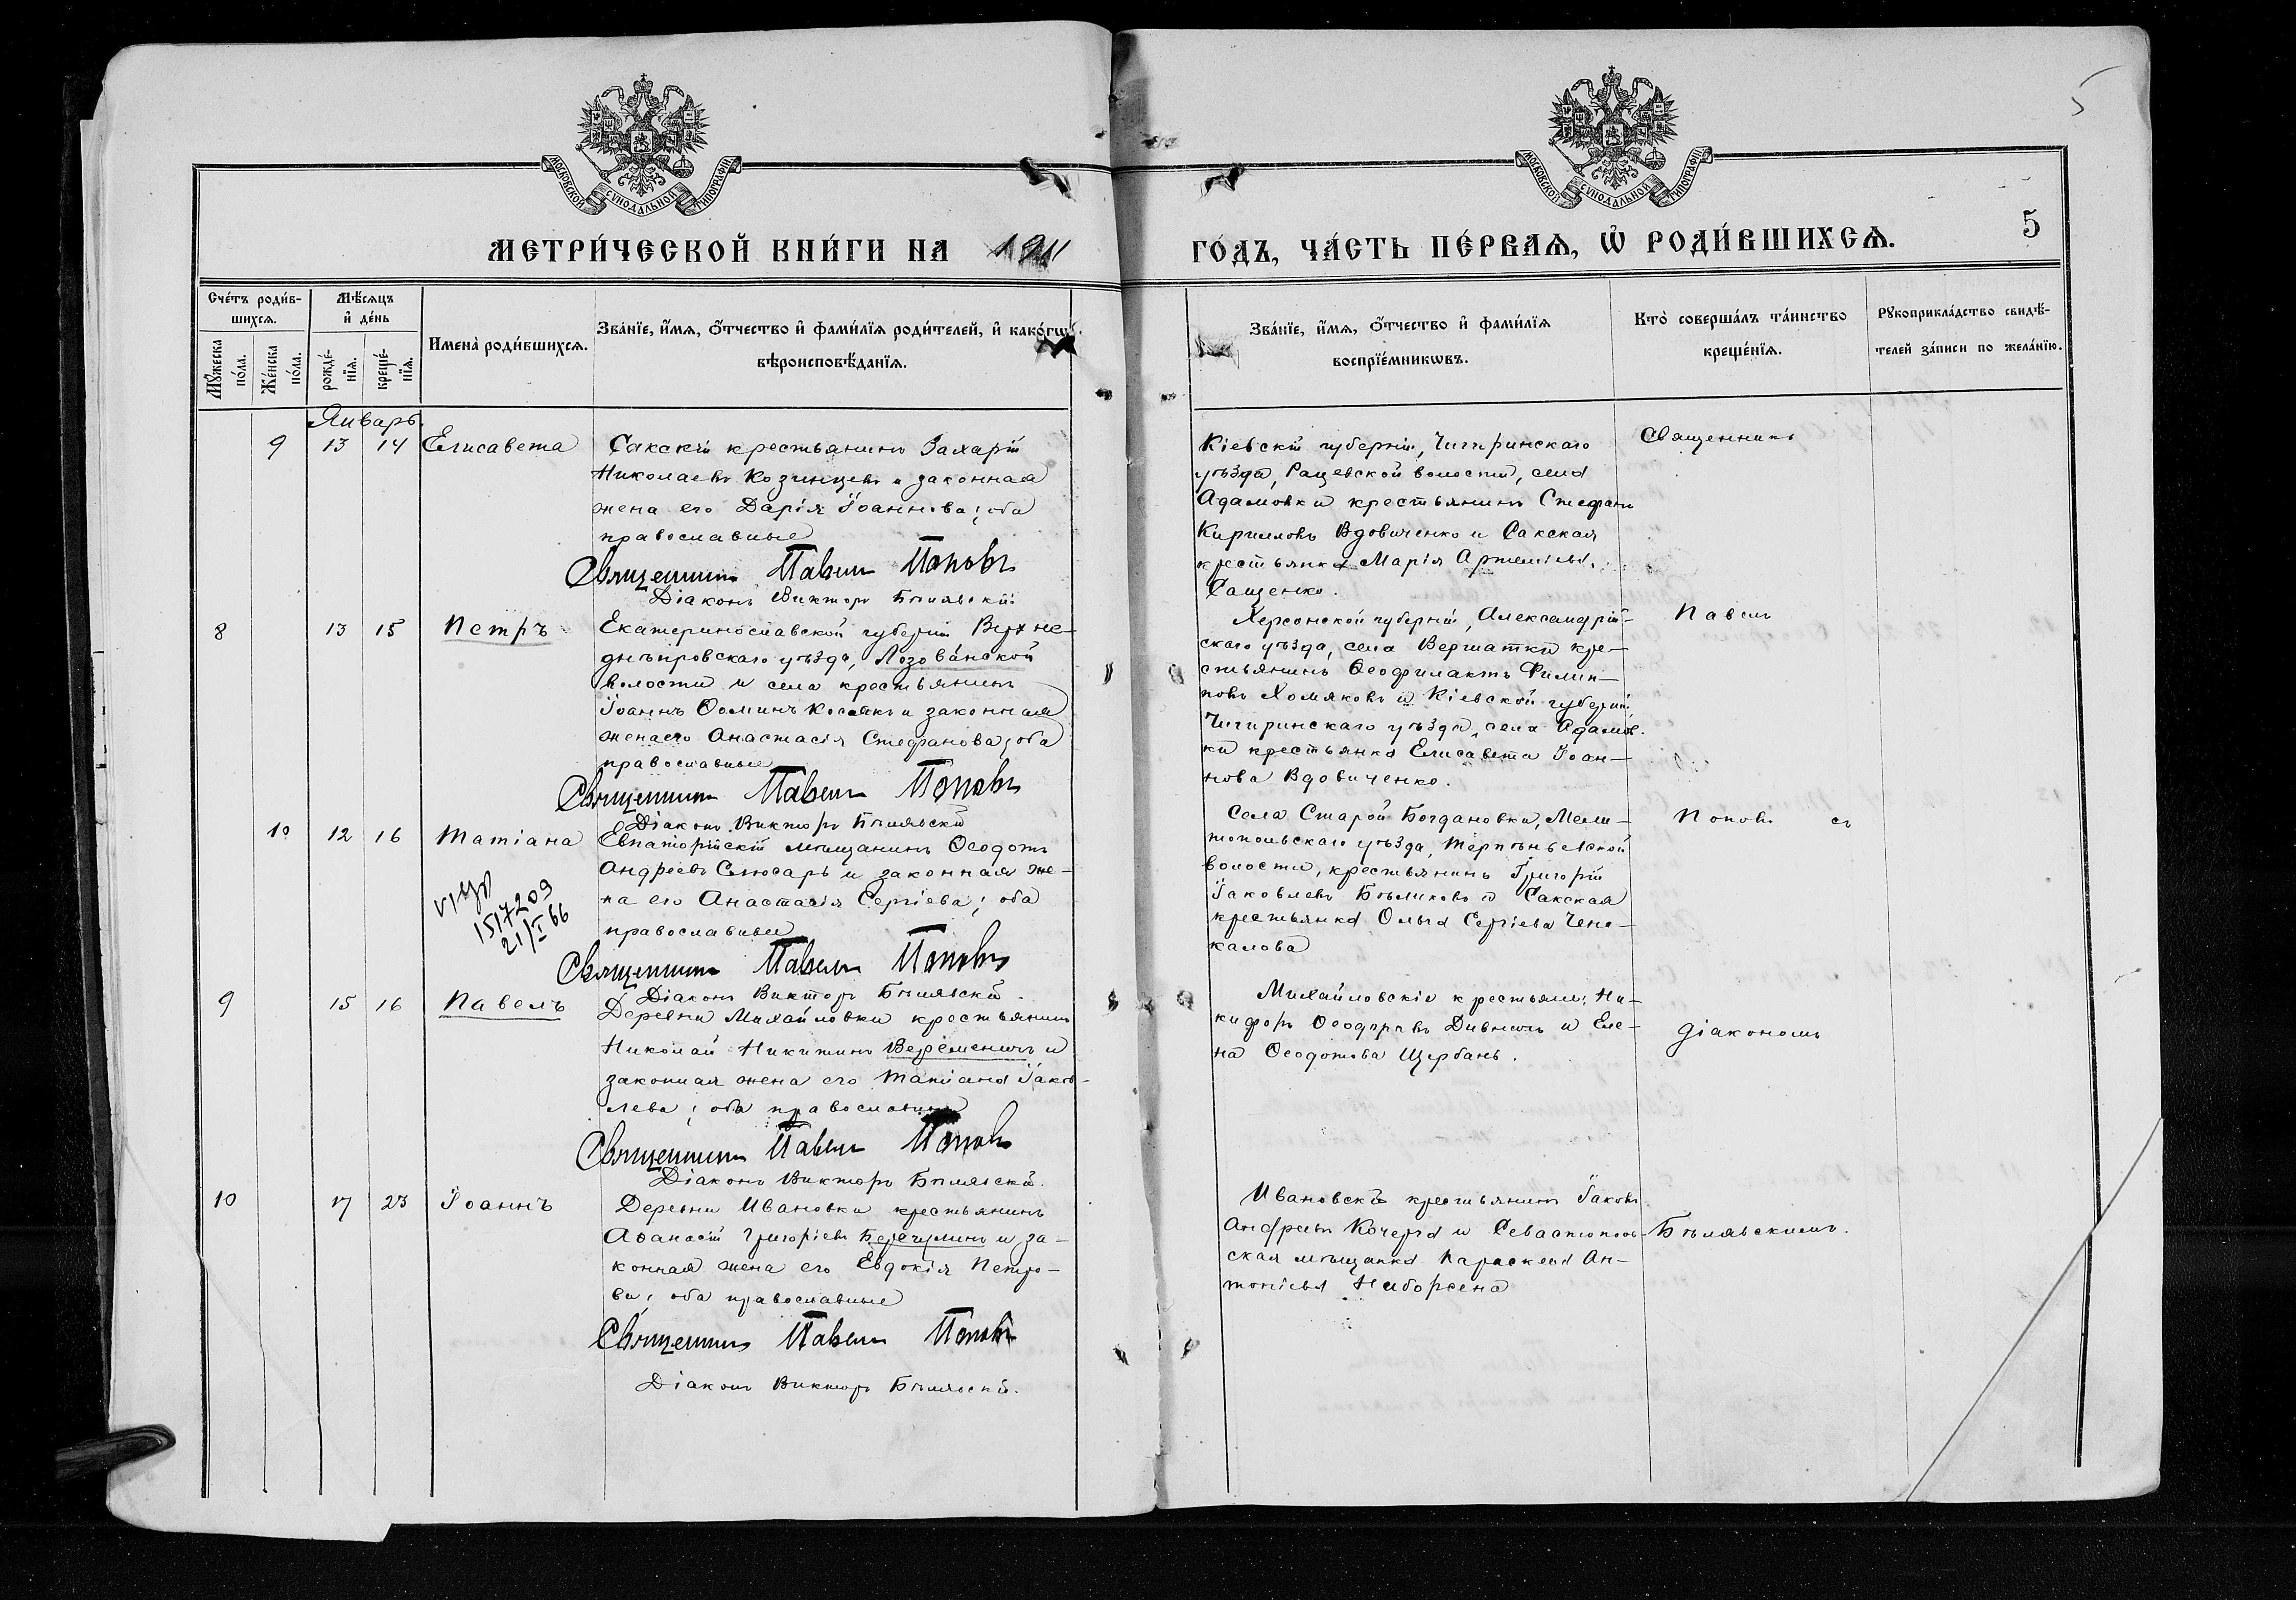 МОСКОВСКОЙ СѴНОДАЛЬНОЙ ТИПОГРАФІИ
МОСКОВСКОЙ СѴНОДАЛЬНОЙ ТИПОГРАФІИ
5
МЕТРИ́ЧЕСКОЙ КНИ́ГИ НА 1911
ГО́ДЪ, ЧА́СТЬ ПЕ́РВАѦ, Ѿ РОДИ́ВШИХСѦ.
Сче́тъ роди́в-
шихсѧ.
Мꙋ́жеска
по́ла.
Же́нска
по́ла.
Мѣ́сѧцъ
и҆ де́нь
рожде́-
нїѧ.
креще́-
нїѧ.
Имена̀ роди́вшихсѧ.
Зва́нїе, и҆́мѧ, ѻ҆́тчество и҆ фами́лїѧ роди́телей, и҆ како́гѡ
вѣроисповѣ́данїѧ.
Зва́нїе, и҆́мѧ, ѻ҆́тчество и҆ фами́лїѧ
воспрїе́мникѡвъ.
Кто̀ соверша́лъ та́инство
креще́нїѧ.
Рꙋкоприкла́дство свидѣ́-
телей за́писи по жела́нїю.
Январь.
9 13 14 Елисавета
Сакскій крестьянинъ Захарій
Николаевъ Козинцевъ и законная
жена его Дарія Іоаннова; оба
православные
Священникъ Павелъ Поповъ
Діаконъ Викторъ Бѣлявскій
Кіевской губерніи, Чигиринскаго
уѣзда, Рацевской волости, села
Адамовки крестьянинъ Стефанъ
Кирилловъ Вдовиченко и Сакская
крестьянка Марія Артеміева
Сащенко.
Священникъ
8 13 15 Петръ
Екатеринославской губерніи Верхне-
днѣпровскаго уѣзда, Лозова́нской
волости и села крестьянинъ
Іоаннъ Ѳоминъ Косякъ и законная
жена его Анастасія Стефанова; оба
православные
Священникъ Павелъ Поповъ
Діаконъ Викторъ Бѣлявскій
Херсонской губерніи, Александрій-
скаго уѣзда, села Вершатки кре-
стьянинъ Ѳеофилактъ Филип-
повъ Хомяковъ и Кіевской губерніи
Чигиринскаго уѣзда, села Адамов-
ки крестьянка Елисавета Іоан-
нова Вдовиченко.
Павелъ
10 12 16 Татіана
1517209
21/I 66
Евпаторійскій мѣщанинъ Ѳеодотъ
Андреевъ Слюсарь и законная же-
на его Анастасія Сергіева; оба
православные
Священникъ Павелъ Поповъ
Діаконъ Викторъ Бѣлявскій.
Села Старой Богдановки, Мели-
топольскаго уѣзда, Терпѣньевской
волости, крестьянинъ Григорій
Іаковлевъ Бѣликовъ и Сакская
крестьянка Ольга Сергіева Чека-
калова
Поповъ съ
9 15 16 Павелъ
Деревни Михайловки крестьянинъ
Николай Никитинъ Веременичъ и
законная жена его Татіана Іаков-
лева; оба православные
Священникъ Павелъ Поповъ
Діаконъ Викторъ Бѣлявскій.
Михайловскіе крестьяне: Ни-
кифоръ Ѳеодоровъ Дивничъ и Еле-
на Ѳеодотова Щербань.
діакономъ
10 17 23 Іоаннъ
Деревни Ивановки крестьянинъ
Аѳанасій Григоріевъ Берегулинъ и за-
конная жена его Евдокія Петро-
ва; оба православные
Священникъ Павелъ Поповъ
Діаконъ Викторъ Бѣлявскій.
Ивановскій крестьянинъ Іаковъ
Андреевъ Кочерга и Севастополь-
ская мѣщанка Параскева Ан-
тоніева Наборсена
Бѣлявскимъ.